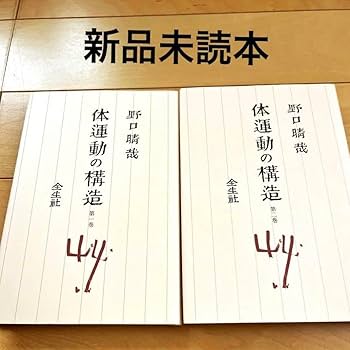 新品未読本
野口晴哉
体運動の構造
第一巻
全生社
野口晴哉
体運動の構造
第二巻
全生社